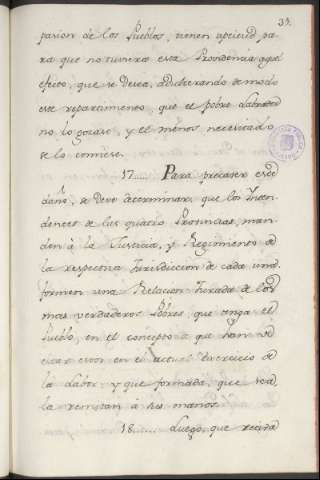 39.
pasion de los Pueblos, tienen aptitud, pa
ra que no tuviera esta Providencia aquel
efecto, que se desea, adulterando de modo
este repartimiento, que el pobre Labrador
no lo gozase, y el menos necesitado
se lo comiese.
17...... Para precaver este
daño, se deve determinar, que los Inten
dentes de las quatro Provincias, man
den à la Justicia, y Regimientos de
la respectiva Jurisdiccion de cada uno
formen una Relacion Jurada de los
mas verdaderos Pobres, que tenga el
Pueblo, en el concepto que han de
estar estos en el actual Exercicio de
la Labor; y que formada, que sea
la remitan à sus manos.
18....... Luego, que reciva